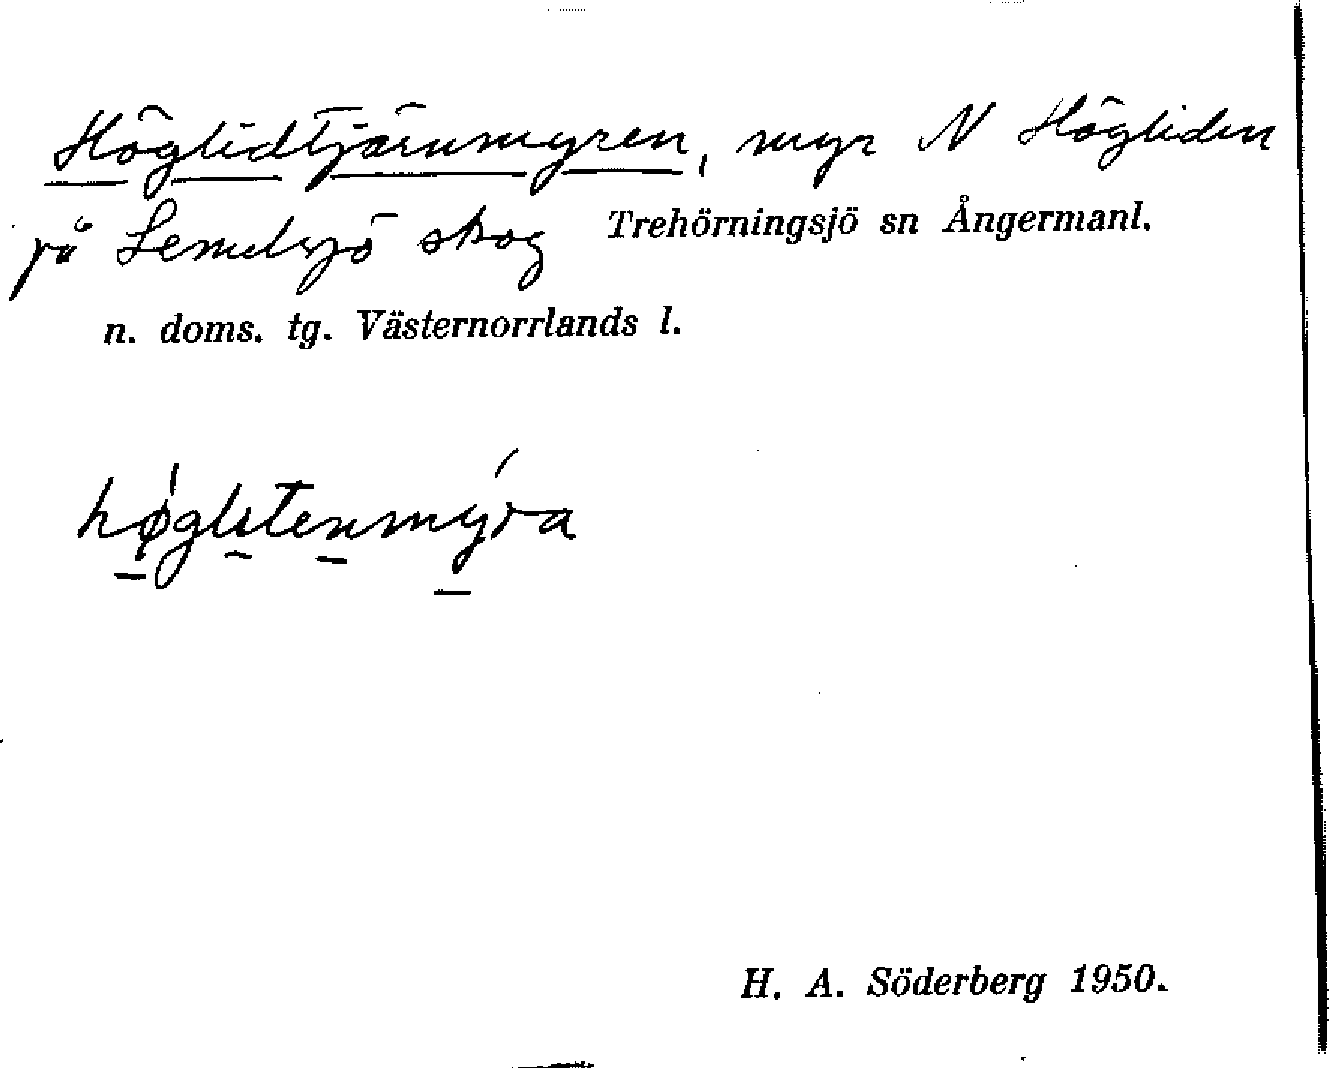 Höglidtjärnmyren, myr N Högliden
på Lemelsjö skog Trehörningsjö sn Ångermanl.
n. doms. tg. Västernorrlands l.
høglitenmyra
H. A. Söderberg 1950.